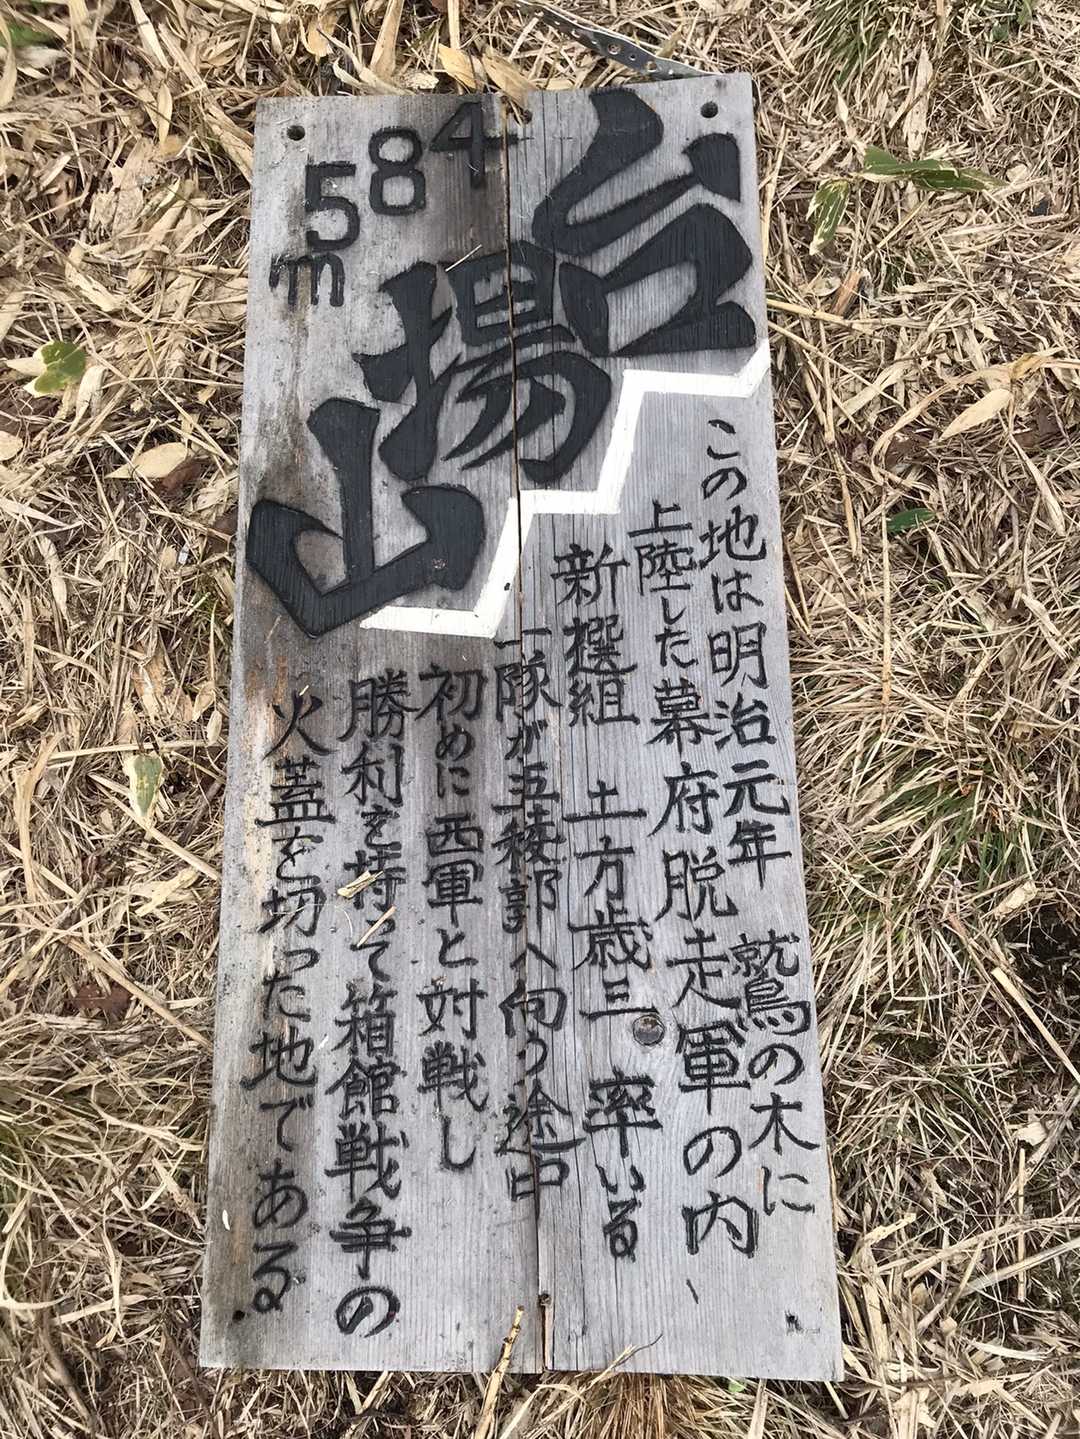 台場山
484
5m
この地は明治元年 鷲の木に
上陸した幕府脱走軍の内、
新撰組 土方歳三 率いる
一隊が五稜郭へ向う途中
初めに西軍と対戦し
勝利を持って箱館戦争の
火蓋を切った地である